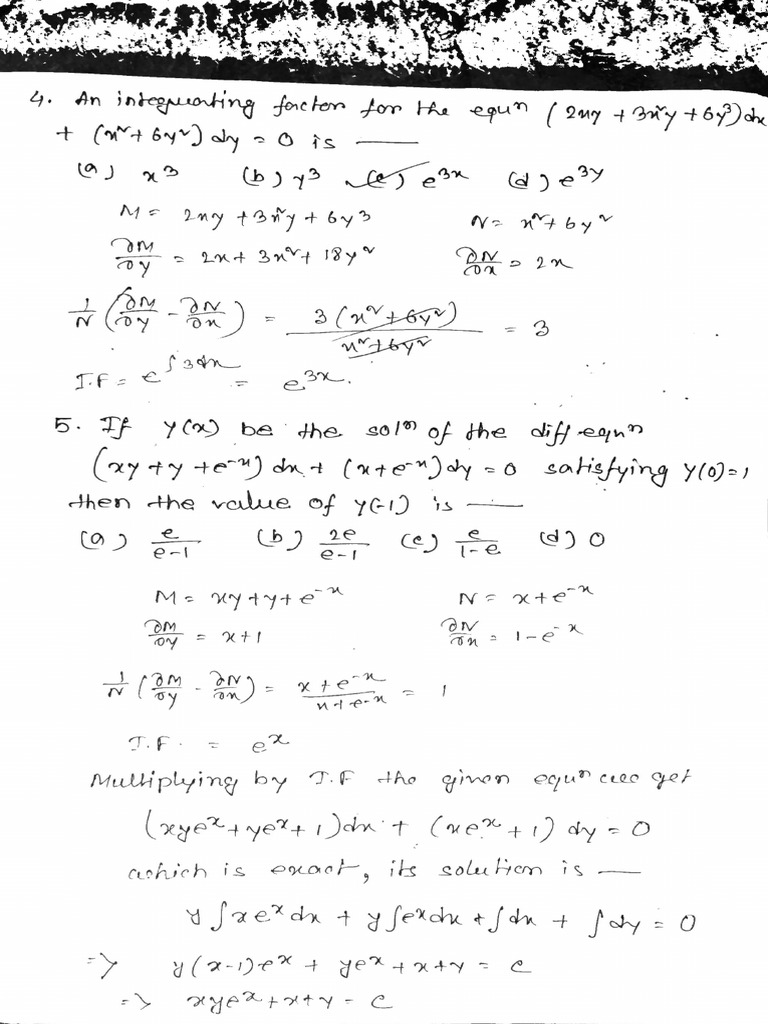 4. An integrating factor for the equn (2xy + 3x²y + 6y³)dx
+ (x² + 6y²) dy = 0 is ——
(a) x³ (b) y³ (c) e³ˣ (d) e³ʸ
M = 2xy + 3x²y + 6y³ N = x² + 6y²
∂M/∂y = 2x + 3x² + 18y² ∂N/∂x = 2x
1/N (∂M/∂y - ∂N/∂x) = 3(x² + 6y²)/(x² + 6y²) = 3
I.F = e^∫3dx = e³ˣ.
5. If y(x) be the solⁿ of the diff equⁿ
(xy + y + e⁻ˣ) dx + (x + e⁻ˣ) dy = 0 satisfying y(0) = 1
then the value of y(-1) is ——
(a) e/(e-1) (b) 2e/(e-1) (c) e/(1-e) (d) 0
M = xy + y + e⁻ˣ N = x + e⁻ˣ
∂M/∂y = x + 1 ∂N/∂x = 1 - e⁻ˣ
1/N (∂M/∂y - ∂N/∂x) = (x + e⁻ˣ)/(x + e⁻ˣ) = 1
I.F. = eˣ
Multiplying by I.F the given equⁿ we get
(xyeˣ + yeˣ + 1)dx + (xeˣ + 1) dy = 0
which is exact, its solution is ——
y∫xeˣdx + y∫eˣdx + ∫dx + ∫dy = 0
=> y(x-1)eˣ + yeˣ + x + y = c
=> xyeˣ + x + y = c